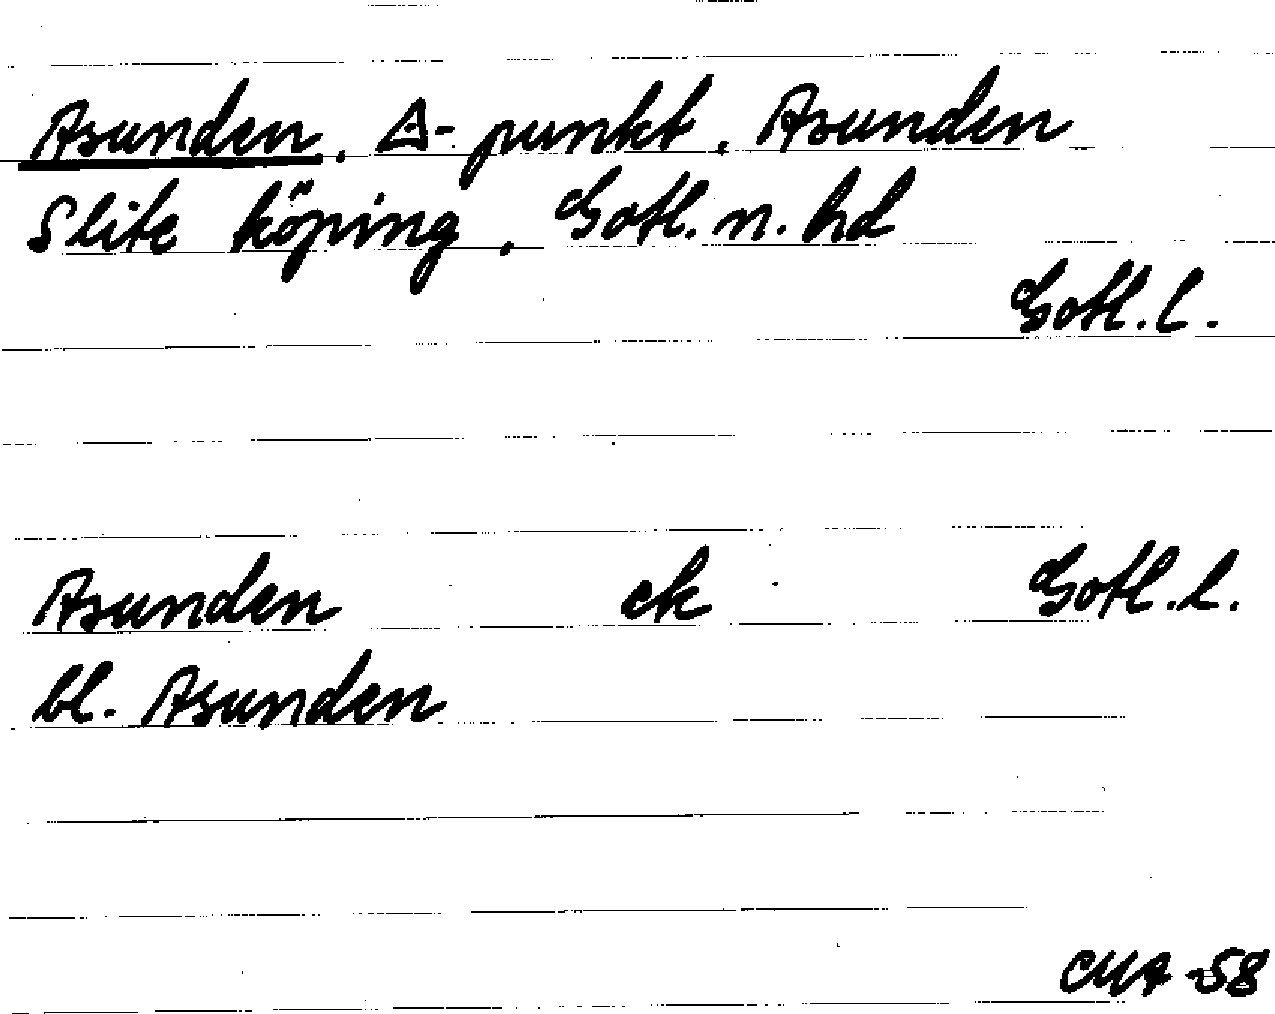 Asunden, △-punkt, Asunden
Slite köping, Gotl. n. hd
Gotl. l.
Asunden ek Gotl. l.
bl. Asunden
CMA -58